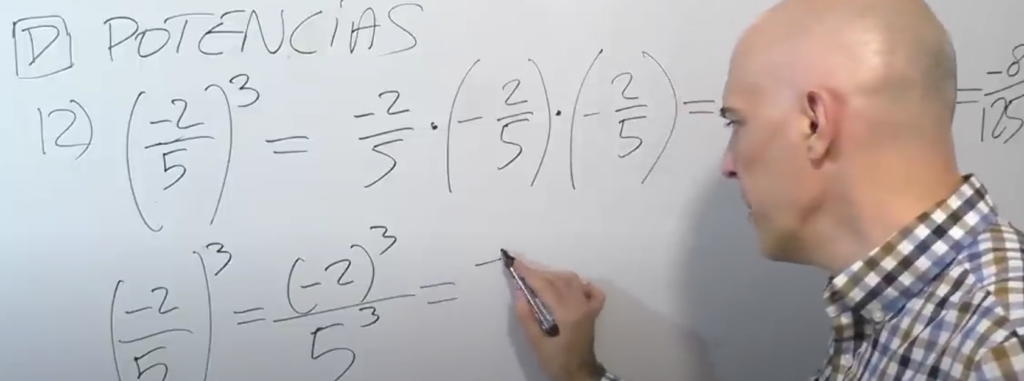 D POTENCIAS
12) (-2/5)³ = -2/5 · (-2/5) · (-2/5) = = -8/125
(-2/5)³ = (-2)³/5³ = -